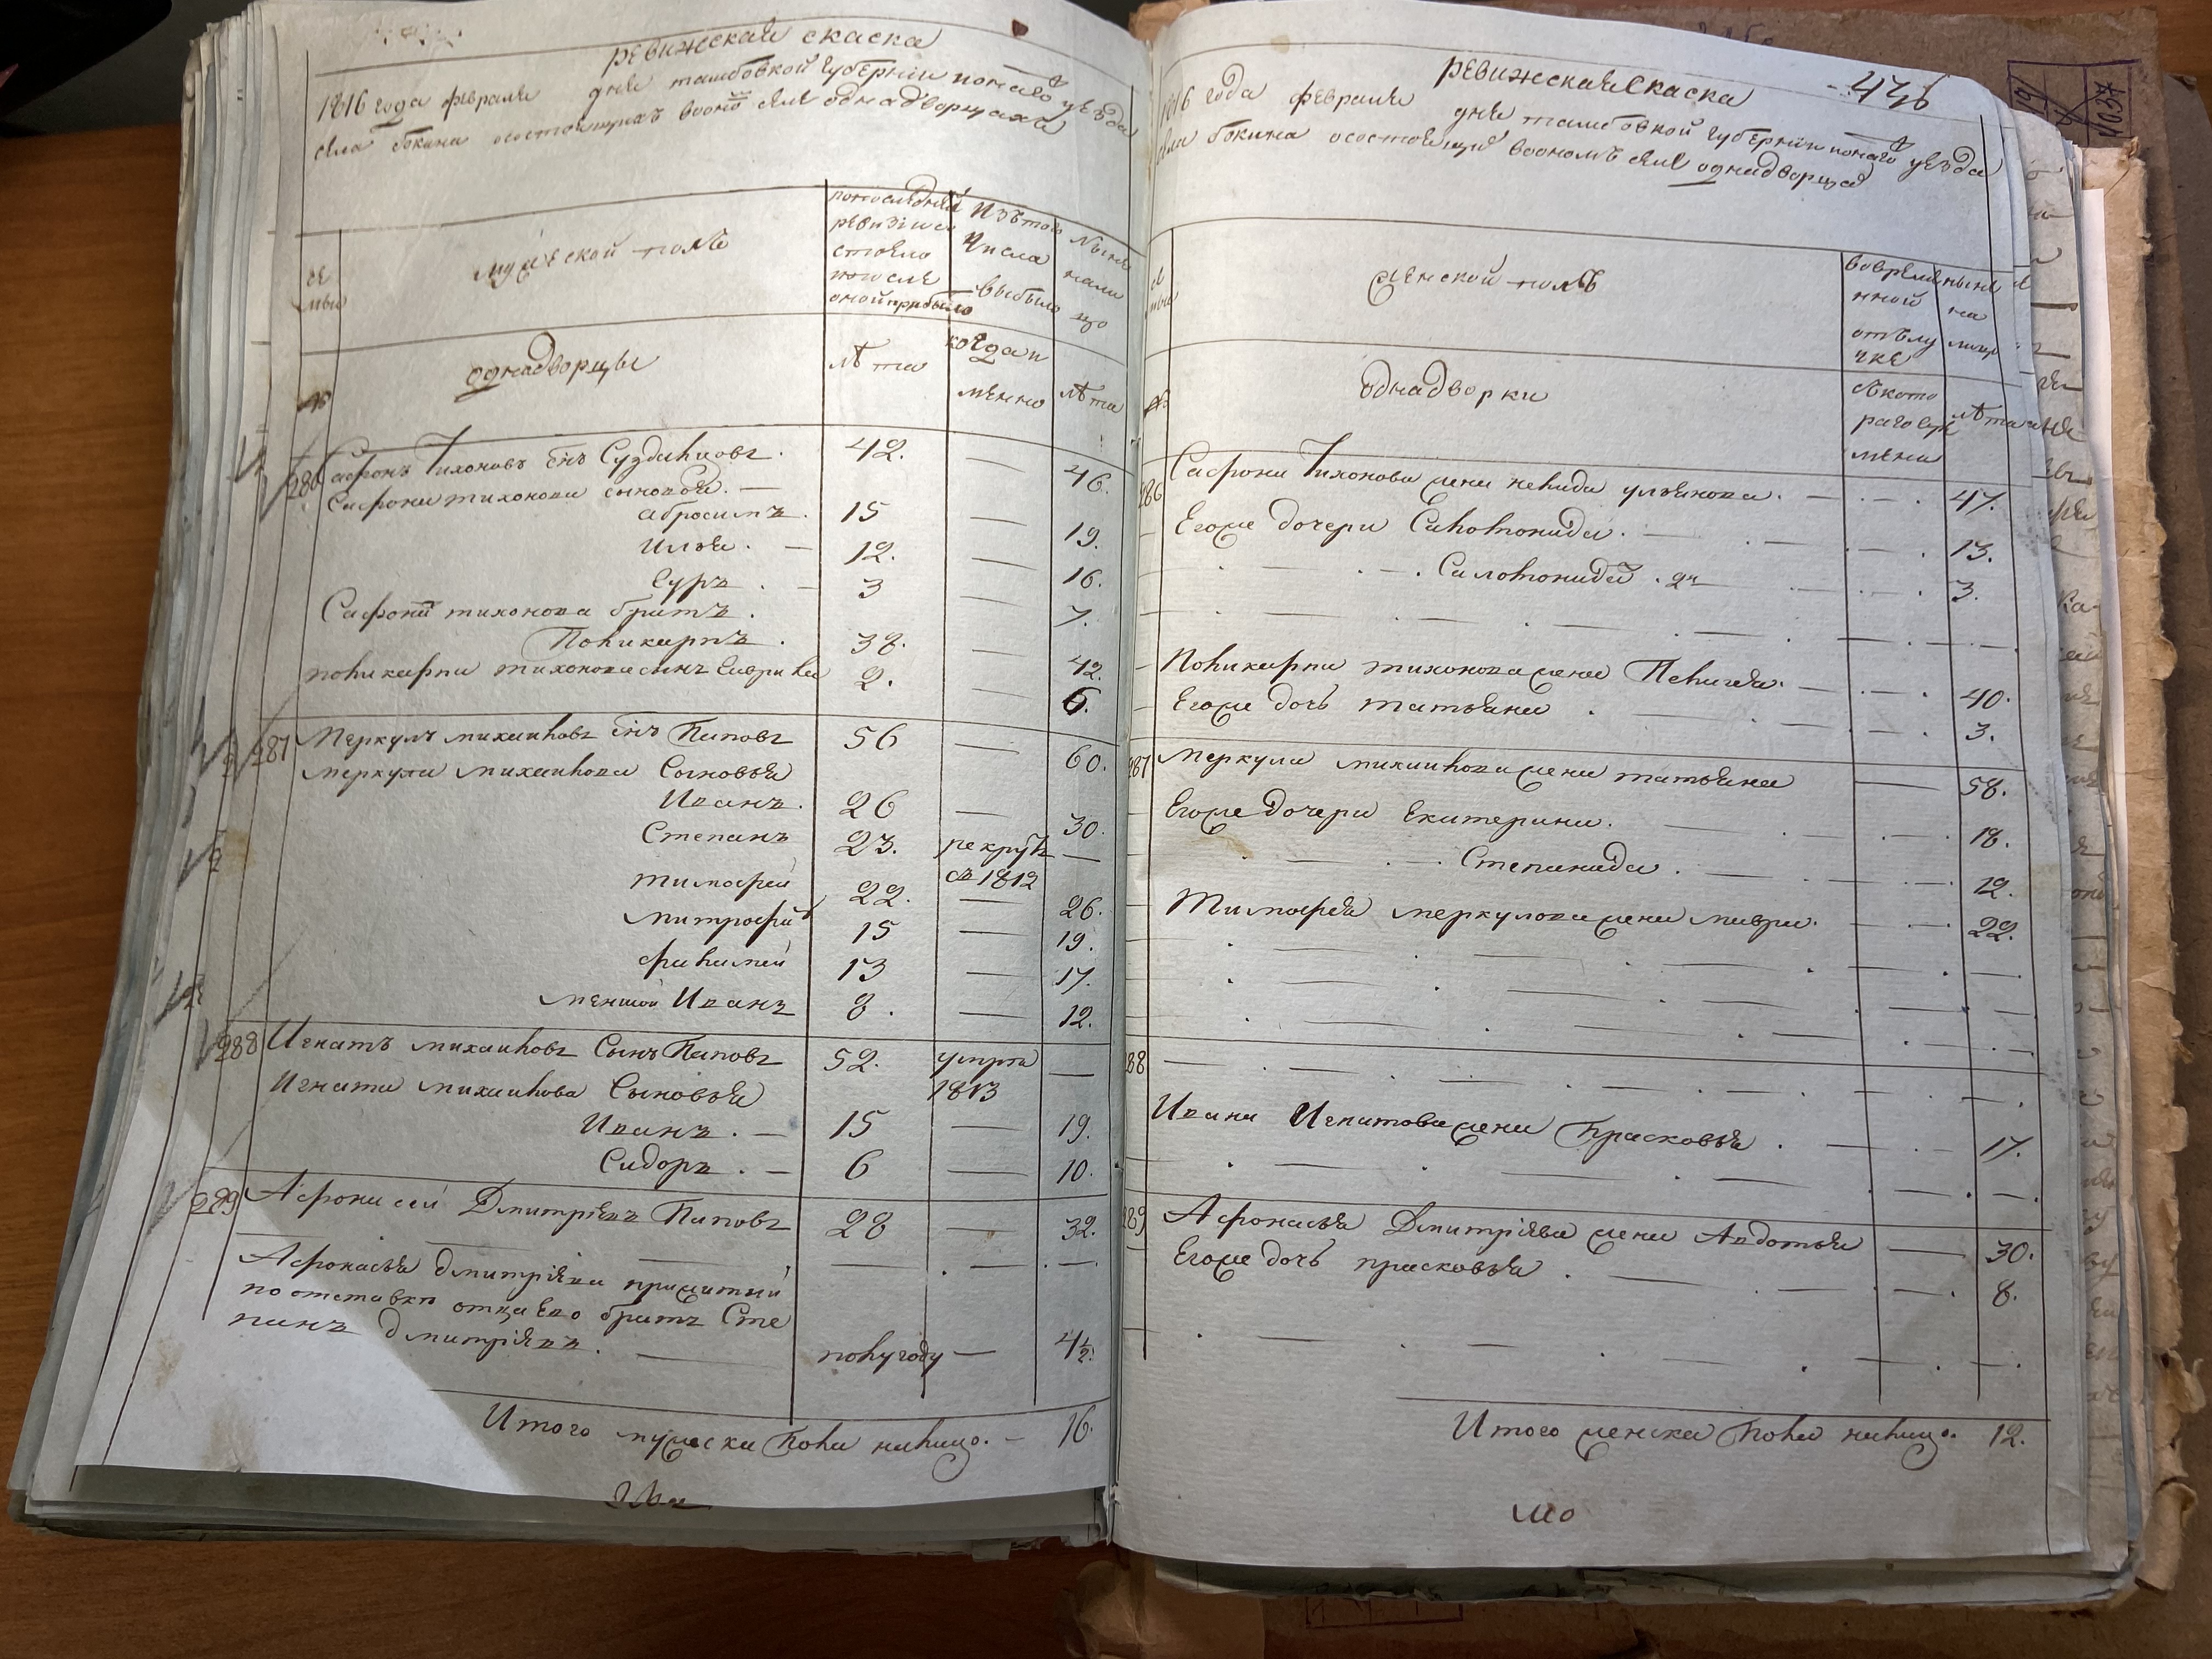 ревижская скаска
1816 года февраля дня тамбовкой губернiи уезда
села бокина осостоящихъ воонб селе однадворцахъ
се
мьи
мужескай полъ
попоследней
ревизiи со
стояло
ипосле
оной прибыло
Изъ того
числа
выбыло
Ныне
нали
цо
№
однадворцы
лѣта
когда и
менно
лѣта
286 Сафронъ Тихоновъ снъ Суздальцовъ. 42. — 46.
Сафрона тихонова сыновья. —
абросимъ. 15 — 19.
илья. — 12. — 16.
Гуръ. — 3 — 7.
Сафрона тихонова братъ.
Поликарпъ. 38. — 42.
поликарпа тихонова сынъ Гаврила 2. — 6.
287 Меркулъ михаиловъ снъ Паповъ 56 — 60.
меркула михаилова Сыновья
Иванъ. 26 — 30.
Степанъ 23. рекрутъ —
съ 1812
тимофей 22. — 26.
митрофанъ 15 — 19.
филипей 13 — 17.
меншой Иванъ 8. — 12.
288 Игнатъ михаиловъ Сынъ Паповъ 52. умръ —
1813
Игната михаилова Сыновья
Иванъ. — 15 — 19.
Сидоръ. — 6 — 10.
289 Афонасей Дмитрiевъ Паповъ 28 — 32.
Афонасья дмитрiева прижитый
по отставки отца ево братъ Сте
панъ дмитрiевъ. — полугоду — 4½.
Итого мужеска пола налицо. — 16.
446
ревижская Скаска
1816 года февраля дня тамбовкой губернiи уезда
села бокина осостоящи воономъ селе однадворца
се
мьи
женской полъ
вовреме
нной
отълу
чке
ныне
на
лицо
№
однадворки
съкото
раго вре
мени
лѣта
286 Сафрона Тихонова жена неналида ульянова. 47.
Егоже дочери Саломонида. 13.
Саломонида. 3.
Поликарпа тихонова жена Пелагея. 40.
Егоже дочь татьяна. 3.
287 меркула михаилова жена татьяна — 58.
Егоже дочери Екатерина. 18.
Степанида. 12.
Тимофея меркулова жена мавра. 22.
288
Ивана Игнатова жена Прасковья. 17.
289 Афонасья Дмитрiева жена Авдотья — 30.
Егоже дочь прасковья. 8.
Итого женска пола налицо. 12.